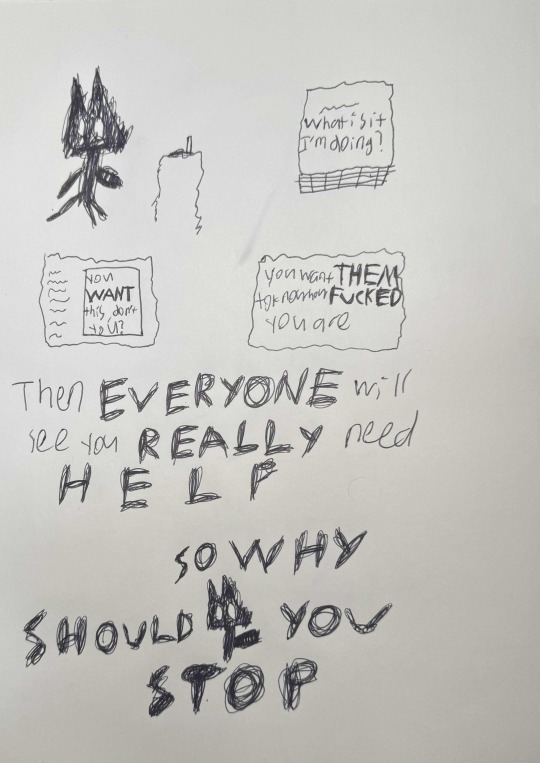 What is it
I'm doing?
you
WANT
this don't
you?
you want THEM
to know how FUCKED
you are
Then EVERYONE will
see you REALLY need
HELP
SO WHY
SHOULD YOU
STOP